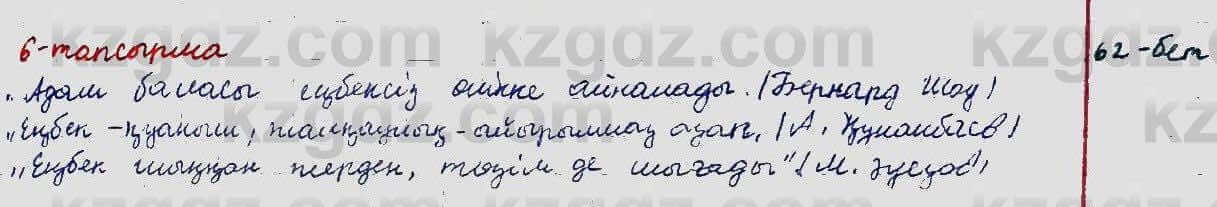 6-тапсырма 62-бет
„Адам баласы еңбексіз өлікке айналады. (Бернард Шоу)
„Еңбек - қуаныш, жалқаулық - айырылмас азап. (А. Құнанбаев)
„Еңбек шыққан жерден, төзім де шығады" (М. Әуезов)